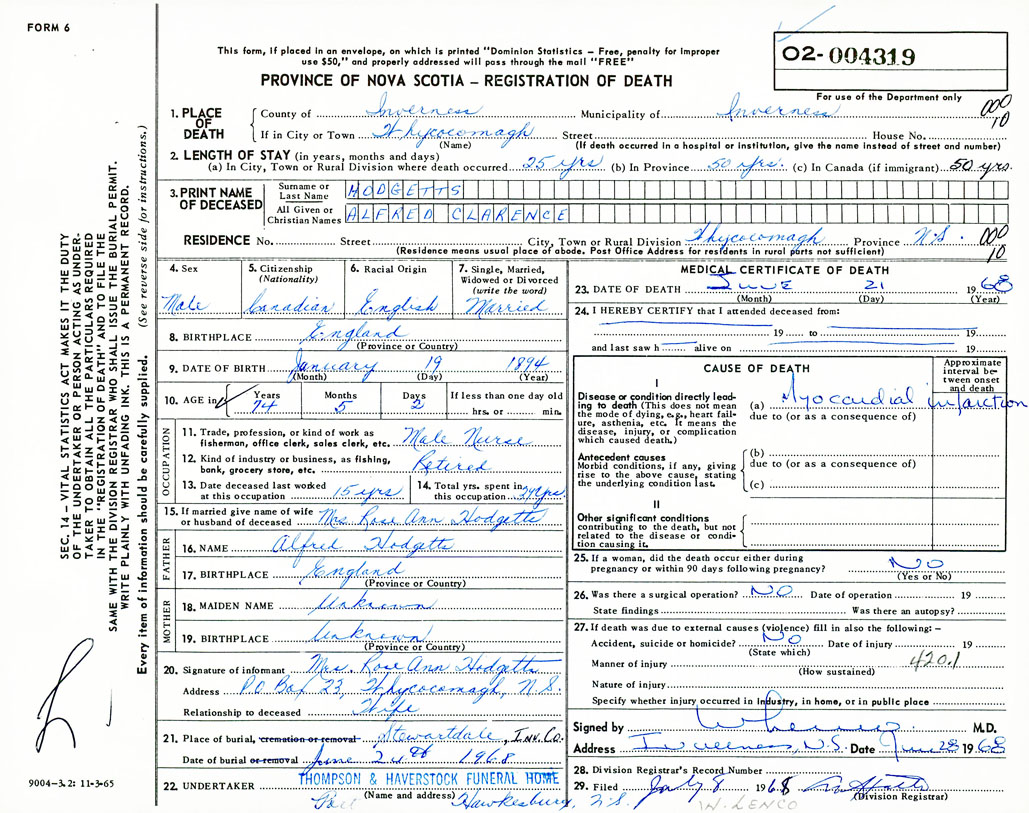 FORM 6
This form, if placed in an envelope, on which is printed "Dominion Statistics – Free, penalty for improper
use $50," and properly addressed will pass through the mail "FREE"
02-004319
PROVINCE OF NOVA SCOTIA – REGISTRATION OF DEATH
For use of the Department only
1. PLACE OF DEATH
County of Inverness Municipality of Inverness 000
If in City or Town Whycocomagh Street House No. 10
(Name) (If death occurred in a hospital or institution, give the name instead of street and number)
2. LENGTH OF STAY (in years, months and days)
(a) In City, Town or Rural Division where death occurred 25 yrs (b) In Province 50 yrs. (c) In Canada (if immigrant) 50 yrs.
3. PRINT NAME OF DECEASED
Surname or Last Name HODGETTS
All Given or Christian Names ALFRED CLARENCE
RESIDENCE No. Street City, Town or Rural Division Whycocomagh Province N.S. 000
(Residence means usual place of abode. Post Office Address for residents in rural parts not sufficient) 10
4. Sex Male
5. Citizenship (Nationality) Canadian
6. Racial Origin English
7. Single, Married, Widowed or Divorced (write the word) Married
8. BIRTHPLACE England
(Province or Country)
9. DATE OF BIRTH January 19 1894
(Month) (Day) (Year)
10. AGE in Years 74 Months 5 Days 2 If less than one day old hrs. or min.
OCCUPATION
11. Trade, profession, or kind of work as
fisherman, office clerk, sales clerk, etc. Male Nurse
12. Kind of industry or business, as fishing,
bank, grocery store, etc. Retired
13. Date deceased last worked
at this occupation 15 yrs
14. Total yrs. spent in
this occupation yrs.
15. If married give name of wife
or husband of deceased Mrs. Rose Ann Hodgetts
FATHER
16. NAME Alfred Hodgetts
17. BIRTHPLACE England
(Province or Country)
MOTHER
18. MAIDEN NAME Unknown
19. BIRTHPLACE Unknown
(Province or Country)
20. Signature of informant Mrs. Rose Ann Hodgetts
Address P.O. Box 23, Whycocomagh, N.S.
Relationship to deceased Wife
21. Place of burial, cremation or removal Stewartdale, Inv. Co.
Date of burial or removal June 24th 1968
22. UNDERTAKER THOMPSON & HAVERSTOCK FUNERAL HOME
(Name and address) Port Hawkesbury, N.S.
MEDICAL CERTIFICATE OF DEATH
23. DATE OF DEATH JUNE 21 1968
(Month) (Day) (Year)
24. I HEREBY CERTIFY that I attended deceased from:
19 to 19
and last saw h alive on 19
CAUSE OF DEATH
Approximate interval between onset and death
I
Disease or condition directly leading
to death (This does not mean
the mode of dying, e.g., heart failure,
asthenia, etc. It means the
disease, injury, or complication
which caused death.)
(a) Myocardial infarction
due to (or as a consequence of)
Antecedent causes
Morbid conditions, if any, giving
rise to the above cause, stating
the underlying condition last.
(b)
due to (or as a consequence of)
(c)
II
Other significant conditions
contributing to the death, but not
related to the disease or condition
causing it.
25. If a woman, did the death occur either during
pregnancy or within 90 days following pregnancy? NO
(Yes or No)
26. Was there a surgical operation? NO Date of operation 19
State findings Was there an autopsy?
27. If death was due to external causes (violence) fill in also the following: –
Accident, suicide or homicide? NO Date of injury 19
(State which)
Manner of injury 420.1
(How sustained)
Nature of injury
Specify whether injury occurred in industry, in home, or in public place
Signed by M.D.
Address Inverness, N.S. Date June 28 1968
28. Division Registrar's Record Number
29. Filed July 8 1968
(Division Registrar)
W. LENCO
SEC. 14 – VITAL STATISTICS ACT MAKES IT THE DUTY
OF THE UNDERTAKER OR PERSON ACTING AS UNDER-
TAKER TO OBTAIN ALL THE PARTICULARS REQUIRED
IN THE "REGISTRATION OF DEATH" AND TO FILE THE
SAME WITH THE DIVISION REGISTRAR WHO SHALL ISSUE THE BURIAL PERMIT.
WRITE PLAINLY WITH UNFADING INK. THIS IS A PERMANENT RECORD.
Every item of information should be carefully supplied. (See reverse side for instructions.)
9004-3.2: 11-3-65